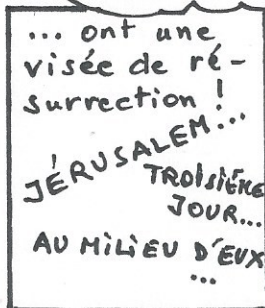 ... ont une
visée de ré-
surrection !
JÉRUSALEM...
TROISIÈME
JOUR...
AU MILIEU D'EUX
...